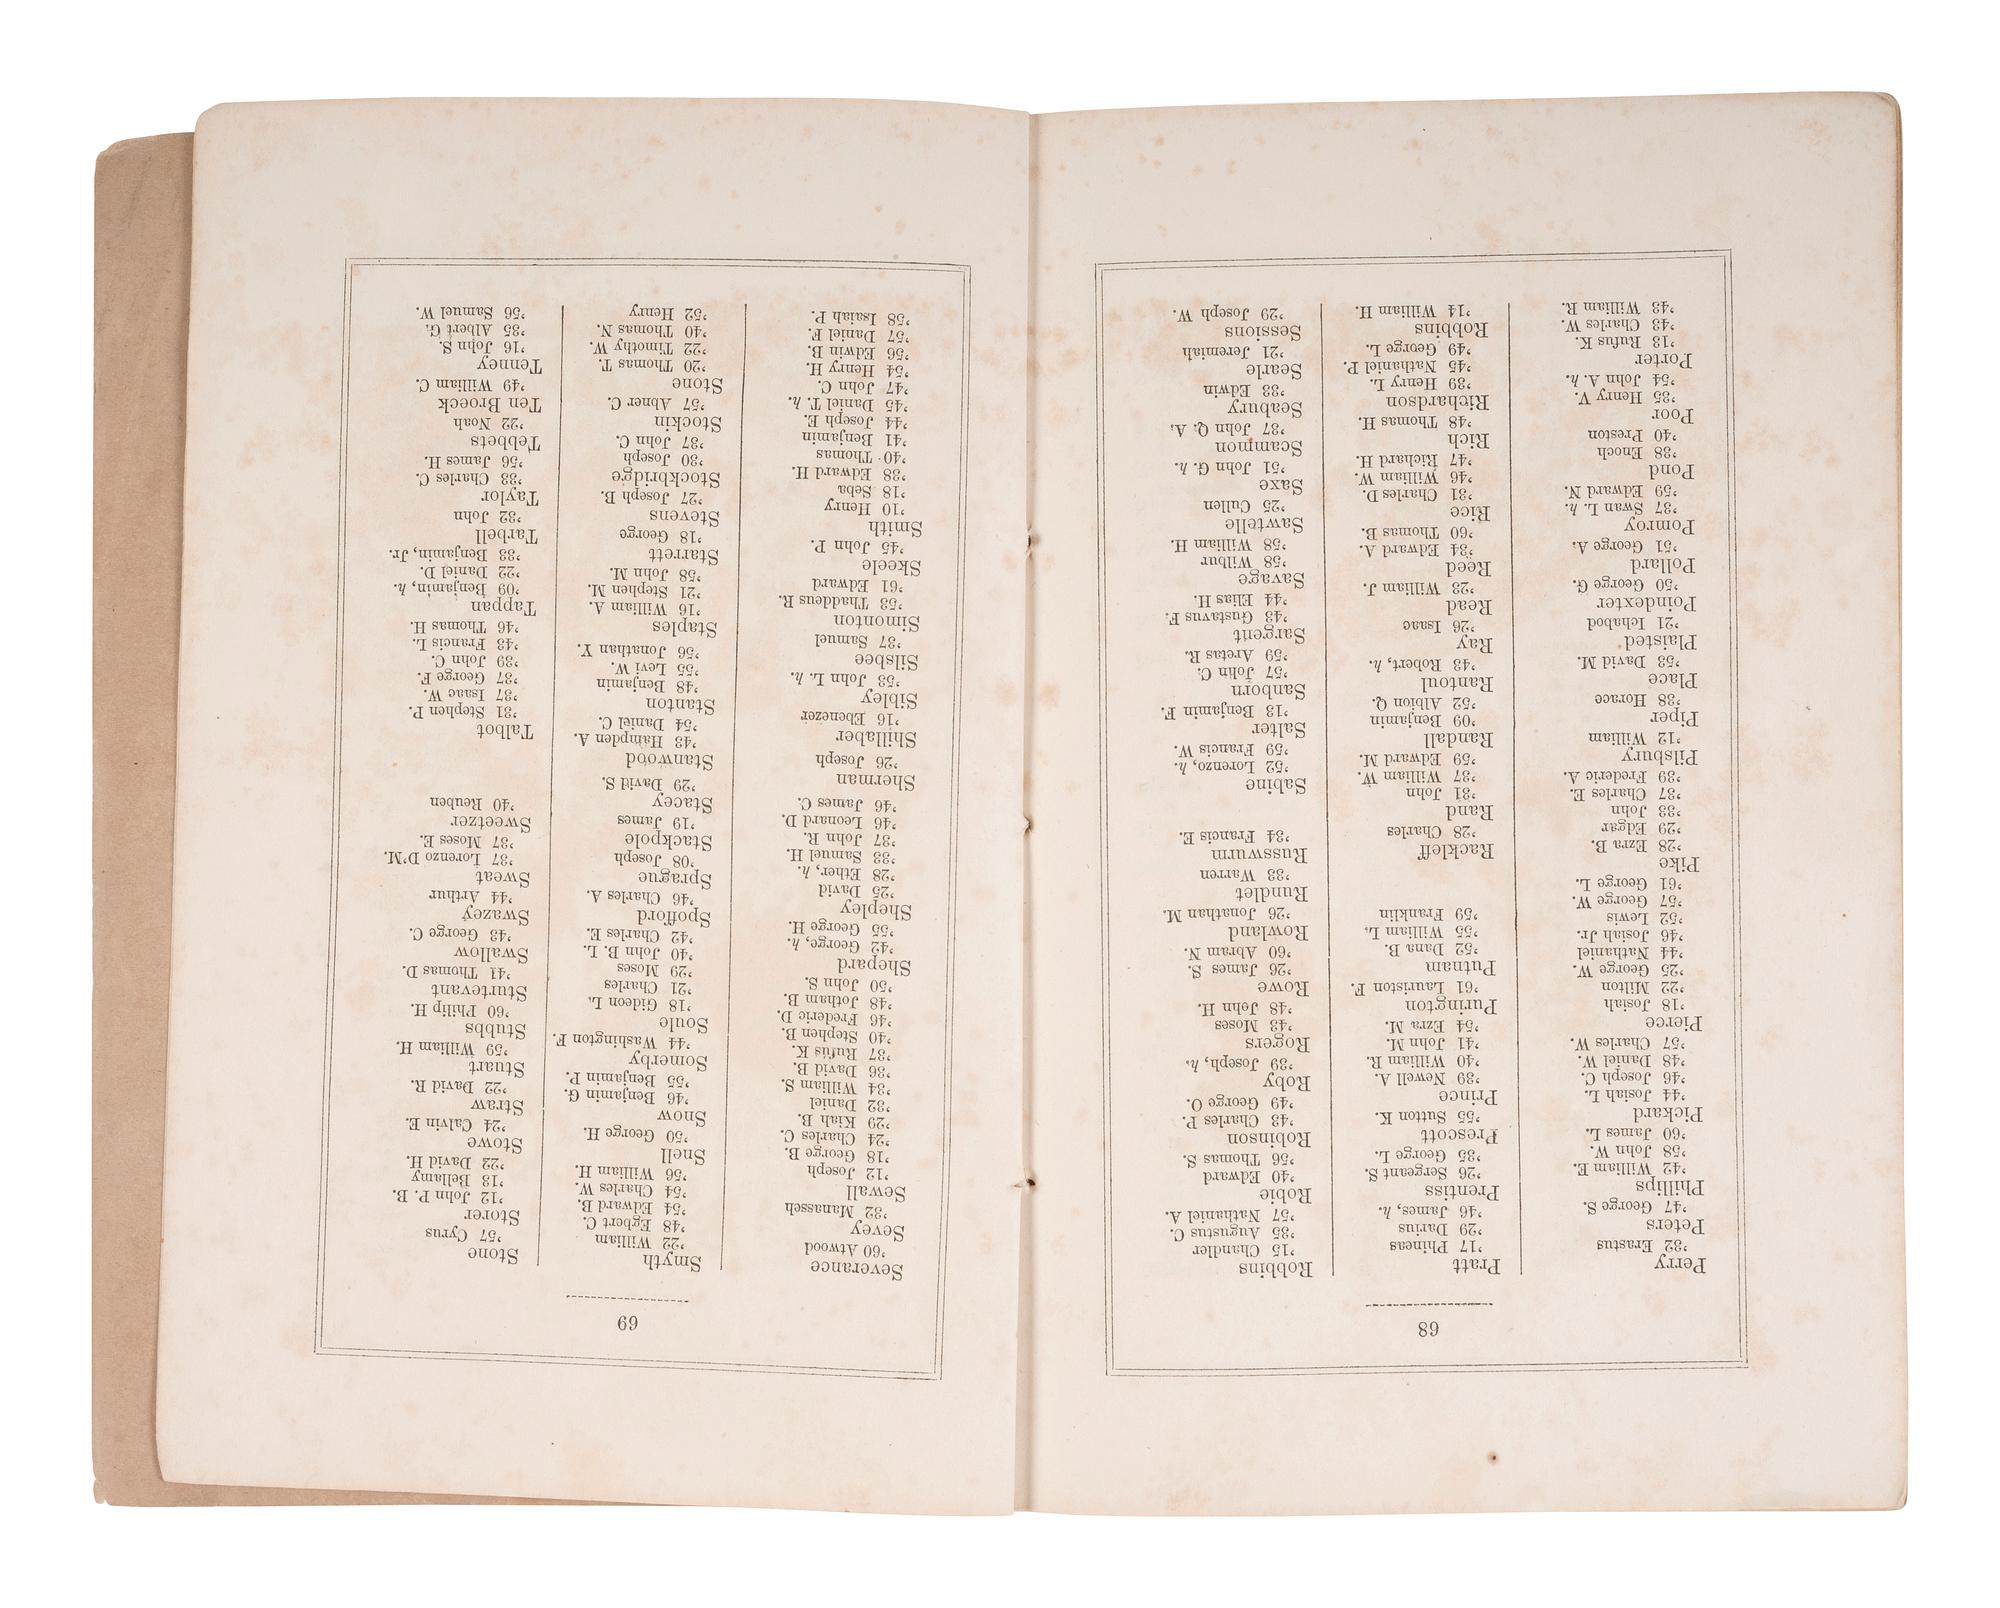 68
Perry
’32 Erastus
Peters
’47 George S.
Phillips
’42 William E.
’58 John W.
’60 James L.
Pickard
’44 Josiah L.
’46 Joseph C.
’48 Daniel W.
’57 Charles W.
Pierce
’18 Josiah
’22 Milton
’25 George W.
’44 Nathaniel
’46 Josiah Jr.
’52 Lewis
’57 George W.
’61 George L.
Pike
’28 Ezra B.
’29 Edgar
’33 John
’37 Charles E.
’39 Frederic A.
Pilsbury
’12 William
Piper
’38 Horace
Place
’53 David M.
Plaisted
’21 Ichabod
Poindexter
’50 George G.
Pollard
’51 George A.
Pomroy
’37 Swan L. h.
’59 Edward N.
Pond
’38 Enoch
’40 Preston
Poor
’35 Henry V.
’54 John A. h.
Porter
’13 Rufus K.
’43 Charles W.
’43 William R.
Pratt
’17 Phineas
’29 Darius
’46 James, h.
Prentiss
’26 Sergeant S.
’35 George L.
Prescott
’55 Sutton K.
Prince
’39 Newell A.
’40 William R.
’41 John M.
’54 Ezra M.
Purington
’61 Lauriston F.
Putnam
’52 Dana B.
’55 William L.
’59 Franklin
Rackleff
’28 Charles
Rand
’31 John
’37 William W.
’59 Edward M.
Randall
’09 Benjamin
’52 Albion Q.
Rantoul
’43 Robert, h.
Ray
’26 Isaac
Read
’23 William J.
Reed
’34 Edward A.
’60 Thomas B.
Rice
’31 Charles D.
’46 William W.
’47 Richard H.
Rich
’48 Thomas H.
Richardson
’39 Henry L.
’45 Nathaniel P.
’49 George L.
Robbins
’14 William H.
Robbins
’15 Chandler
’35 Augustus C.
’57 Nathaniel A.
Robie
’40 Edward
’56 Thomas S.
Robinson
’43 Charles P.
’49 George O.
Roby
’39 Joseph, h.
Rogers
’43 Moses
’48 John H.
Rowe
’26 James S.
’60 Abram N.
Rowland
’26 Jonathan M.
Rundlet
’33 Warren
Russwurm
’34 Francis E.
Sabine
’52 Lorenzo, h.
’59 Francis W.
Salter
’13 Benjamin F.
Sanborn
’57 John C.
’59 Aretas R.
Sargent
’43 Gustavus F.
’44 Elias H.
Savage
’58 Wilbur
’58 William H.
Sawtelle
’25 Cullen
Saxe
’51 John G. h.
Scammon
’37 John Q. A.
Seabury
’33 Edwin
Searle
’21 Jeremiah
Sessions
’29 Joseph W.
69
Severance
’60 Atwood
Sevey
’32 Manasseh
Sewall
’12 Joseph
’18 George B.
’24 Charles C.
’29 Kiah B.
’32 Daniel
’34 William S.
’36 David B.
’37 Rufus K.
’40 Stephen B.
’46 Frederic D.
’48 Jotham B.
’50 John S.
Shepard
’42 George, h.
’55 George H.
Shepley
’25 David
’28 Ether, h.
’33 Samuel H.
’37 John R.
’46 Leonard D.
’46 James C.
Sherman
’26 Joseph
Shillaber
’16 Ebenezer
Sibley
’53 John L. h.
Silsbee
’37 Samuel
Simonton
’53 Thaddeus R.
’61 Edward
Skeele
’45 John P.
Smith
’10 Henry
’18 Seba
’38 Edward H.
’40 Thomas
’41 Benjamin
’44 Joseph E.
’45 Daniel T. h.
’47 John C.
’54 Henry H.
’56 Edwin B.
’57 Daniel F.
’58 Isaiah P.
Smyth
’22 William
’48 Egbert C.
’54 Edward B.
’54 Charles W.
’56 William H.
Snell
’50 George H.
Snow
’46 Benjamin G.
’55 Benjamin P.
Somerby
’44 Washington F.
Soule
’18 Gideon L.
’21 Charles
’29 Moses
’40 John B. L.
’42 Charles E.
Spofford
’46 Charles A.
Sprague
’08 Joseph
Stackpole
’19 James
Stacey
’29 David S.
Stanwood
’43 Hampden A.
’54 Daniel C.
Stanton
’48 Benjamin
’55 Levi W.
’56 Jonathan Y.
Staples
’16 William A.
’21 Stephen M.
’58 John M.
Starrett
’18 George
Stevens
’27 Joseph B.
Stockbridge
’30 Joseph
’37 John C.
Stockin
’57 Abner C.
Stone
’20 Thomas T.
’22 Timothy W.
’40 Thomas N.
’52 Henry
Stone
’57 Cyrus
Storer
’12 John P. B.
’13 Bellamy
’22 David H.
Stowe
’24 Calvin E.
Straw
’22 David R.
Stuart
’59 William H.
Stubbs
’60 Philip H.
Sturtevant
’41 Thomas D.
Swallow
’43 George C.
Swazey
’44 Arthur
Sweat
’37 Lorenzo D’M.
’37 Moses E.
Sweetzer
’40 Reuben
Talbot
’31 Stephen P.
’37 Isaac W.
’37 George F.
’39 John C.
’43 Francis L.
’46 Thomas H.
Tappan
’09 Benjamin, h.
’22 Daniel D.
’33 Benjamin, Jr.
Tarbell
’32 John
Taylor
’33 Charles C.
’56 James H.
Tebbets
’22 Noah
Ten Broeck
’49 William C.
Tenney
’16 John S.
’35 Albert G.
’56 Samuel W.